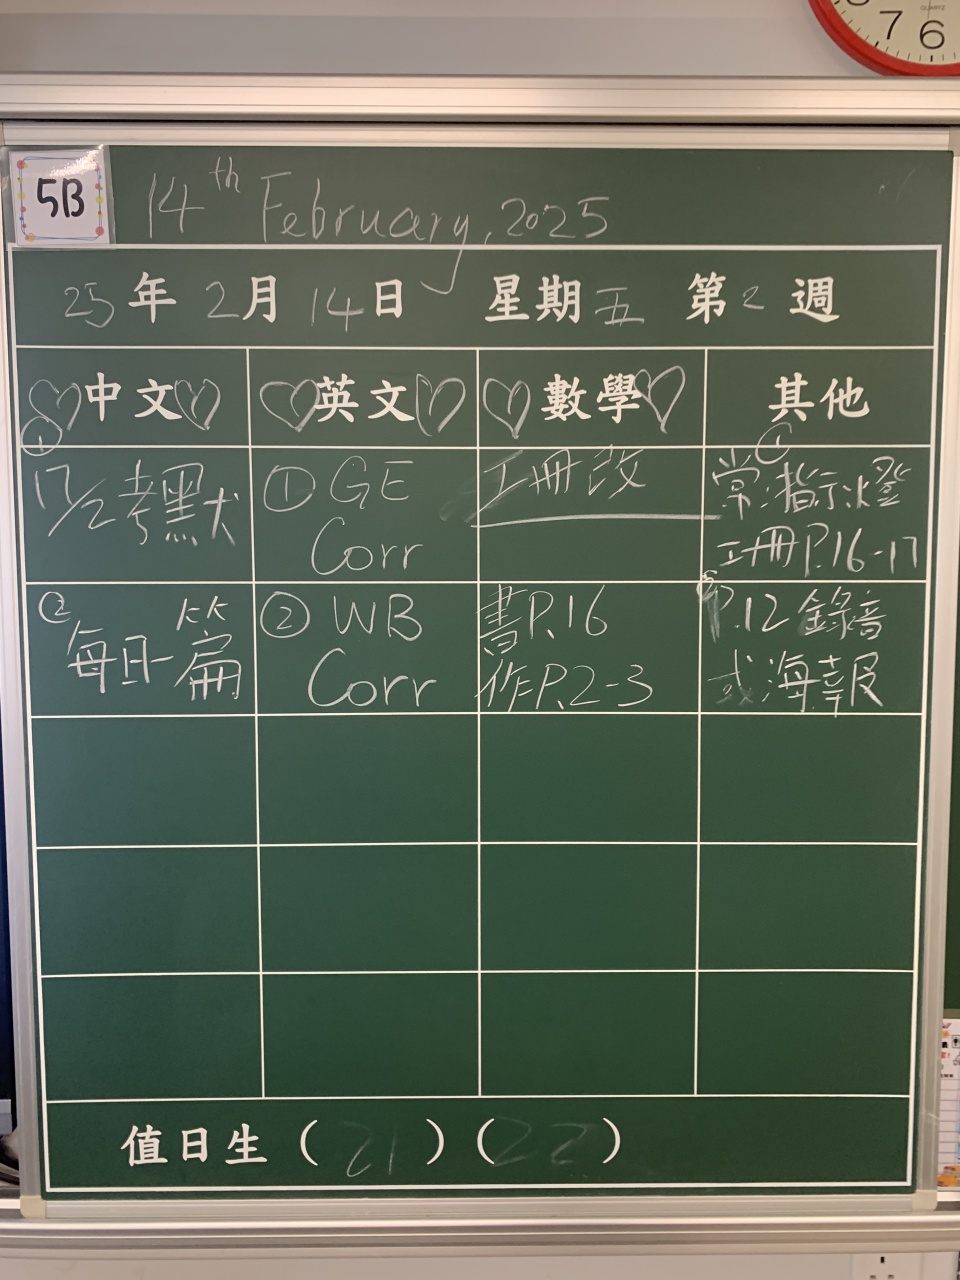 QUARTZ
7 6
5B
14th February, 2025
25年2月14日 星期五 第2週
中文 英文 數學 其他
①
17/2考默
① GE
Corr
工冊改
①
常:指示燈
工冊P.16-17
②
每日一篇
② WB
Corr
書P.16
作P.2-3
②
P.12錄音
或海報
值日生(21)(22)